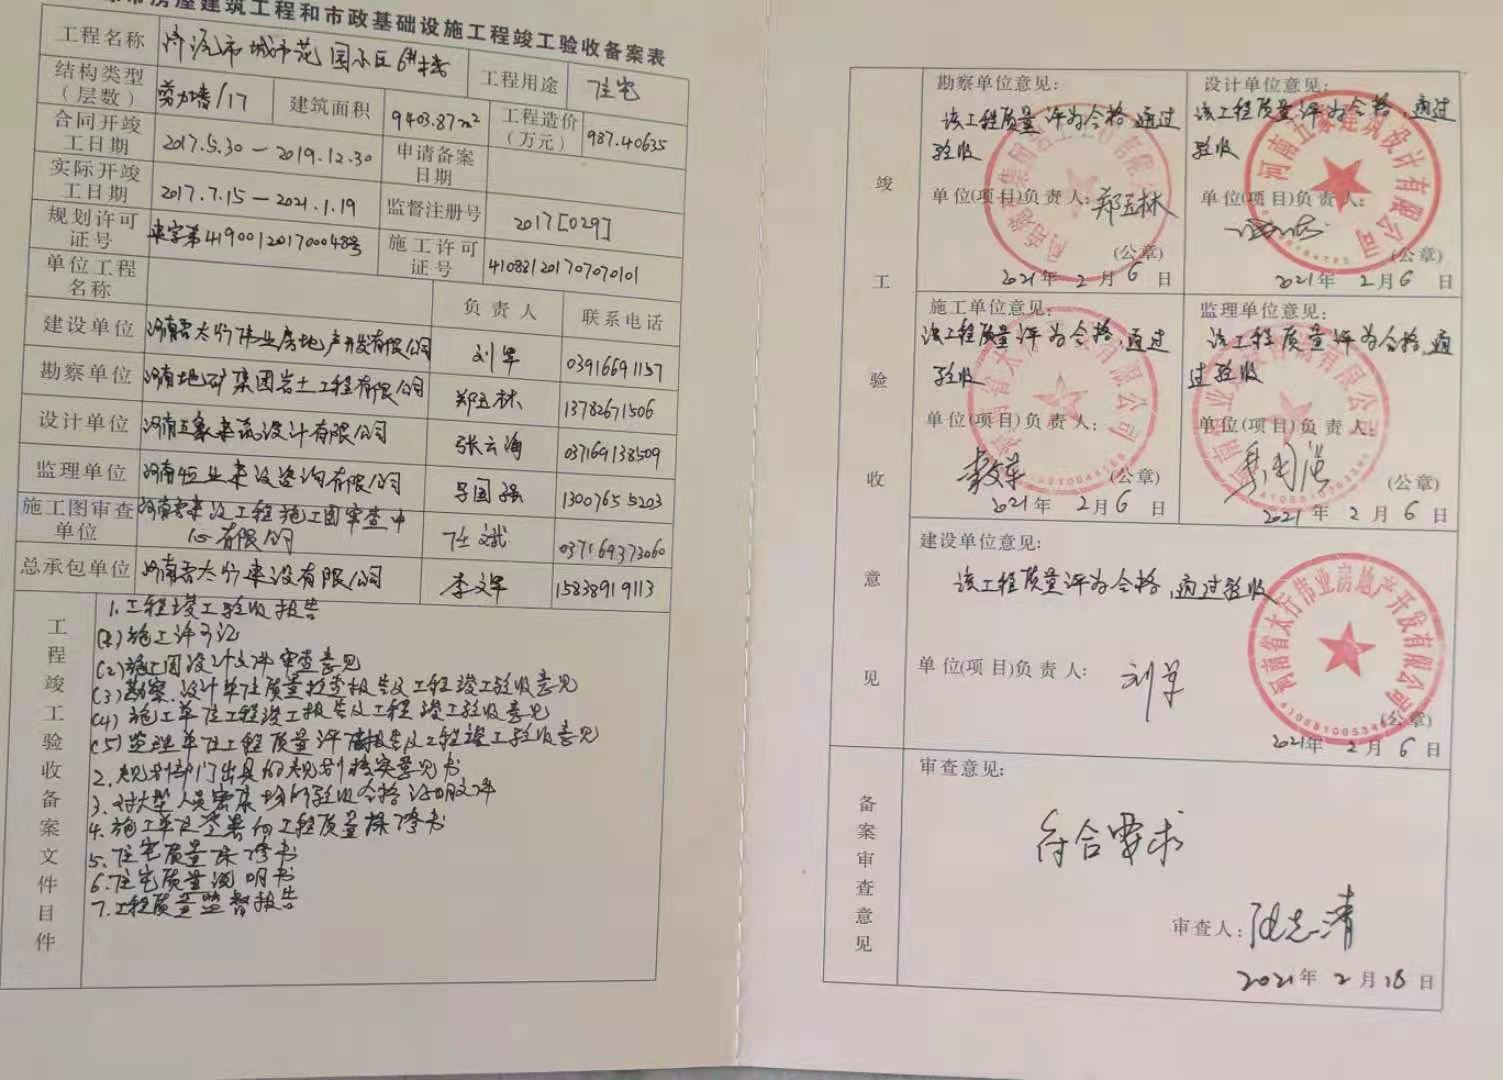 市房屋建筑工程和市政基础设施工程竣工验收备案表
工程名称 济源市城市花园小区6#楼 工程用途 住宅
结构类型（层数） 剪力墙/17 建筑面积 9403.87m² 工程造价（万元） 987.40635
合同开竣工日期 2017.5.30—2019.12.30 申请备案日期
实际开竣工日期 2017.7.15—2021.1.19 监督注册号 2017[029]
规划许可证号 建字第419001201700048号 施工许可证号 410881201707070101
单位工程名称 负责人 联系电话
建设单位 河南省太行伟业房地产开发有限公司 刘军 03916691157
勘察单位 河南地矿集团岩土工程有限公司 郑玉林 13782671506
设计单位 河南五豪建筑设计有限公司 张云海 037169138509
监理单位 河南恒业建设咨询有限公司 国强 13007655203
施工图审查单位 河南省建设工程施工图审查中心有限公司 任斌 037169373060
总承包单位 河南省太行建设有限公司 李文军 15838919113
工程竣工验收备案文件目件
1.工程竣工验收报告
(1)施工许可证
(2)施工图设计文件审查意见
(3)勘察、设计单位质量检查报告及工程竣工验收意见
(4)施工单位工程竣工报告及工程竣工验收意见
(5)监理单位工程质量评估报告及工程竣工验收意见
2.规划部门出具的规划核实意见书
3.对大型人员密集场所验收合格证明文件
4.施工单位签署的工程质量保修书
5.住宅质量保修书
6.住宅质量说明书
7.工程质量监督报告
竣工验收意见
勘察单位意见：
该工程质量评为合格，通过
验收
单位(项目)负责人：郑玉林
(公章)
2021年2月6日
设计单位意见：
该工程质量评为合格，通过
验收
单位(项目)负责人：
(公章)
2021年2月6日
河南五豪建筑设计有限公司
施工单位意见：
该工程质量评为合格，通过
验收
单位(项目)负责人：
李文军
(公章)
2021年2月6日
监理单位意见：
该工程质量评为合格，通
过验收
单位(项目)负责人：
(公章)
2021年2月6日
建设单位意见：
该工程质量评为合格，通过验收
单位(项目)负责人：刘军
(公章)
2021年2月6日
河南省太行伟业房地产开发有限公司
备案审查意见
审查意见：
符合要求
审查人：
2021年2月18日